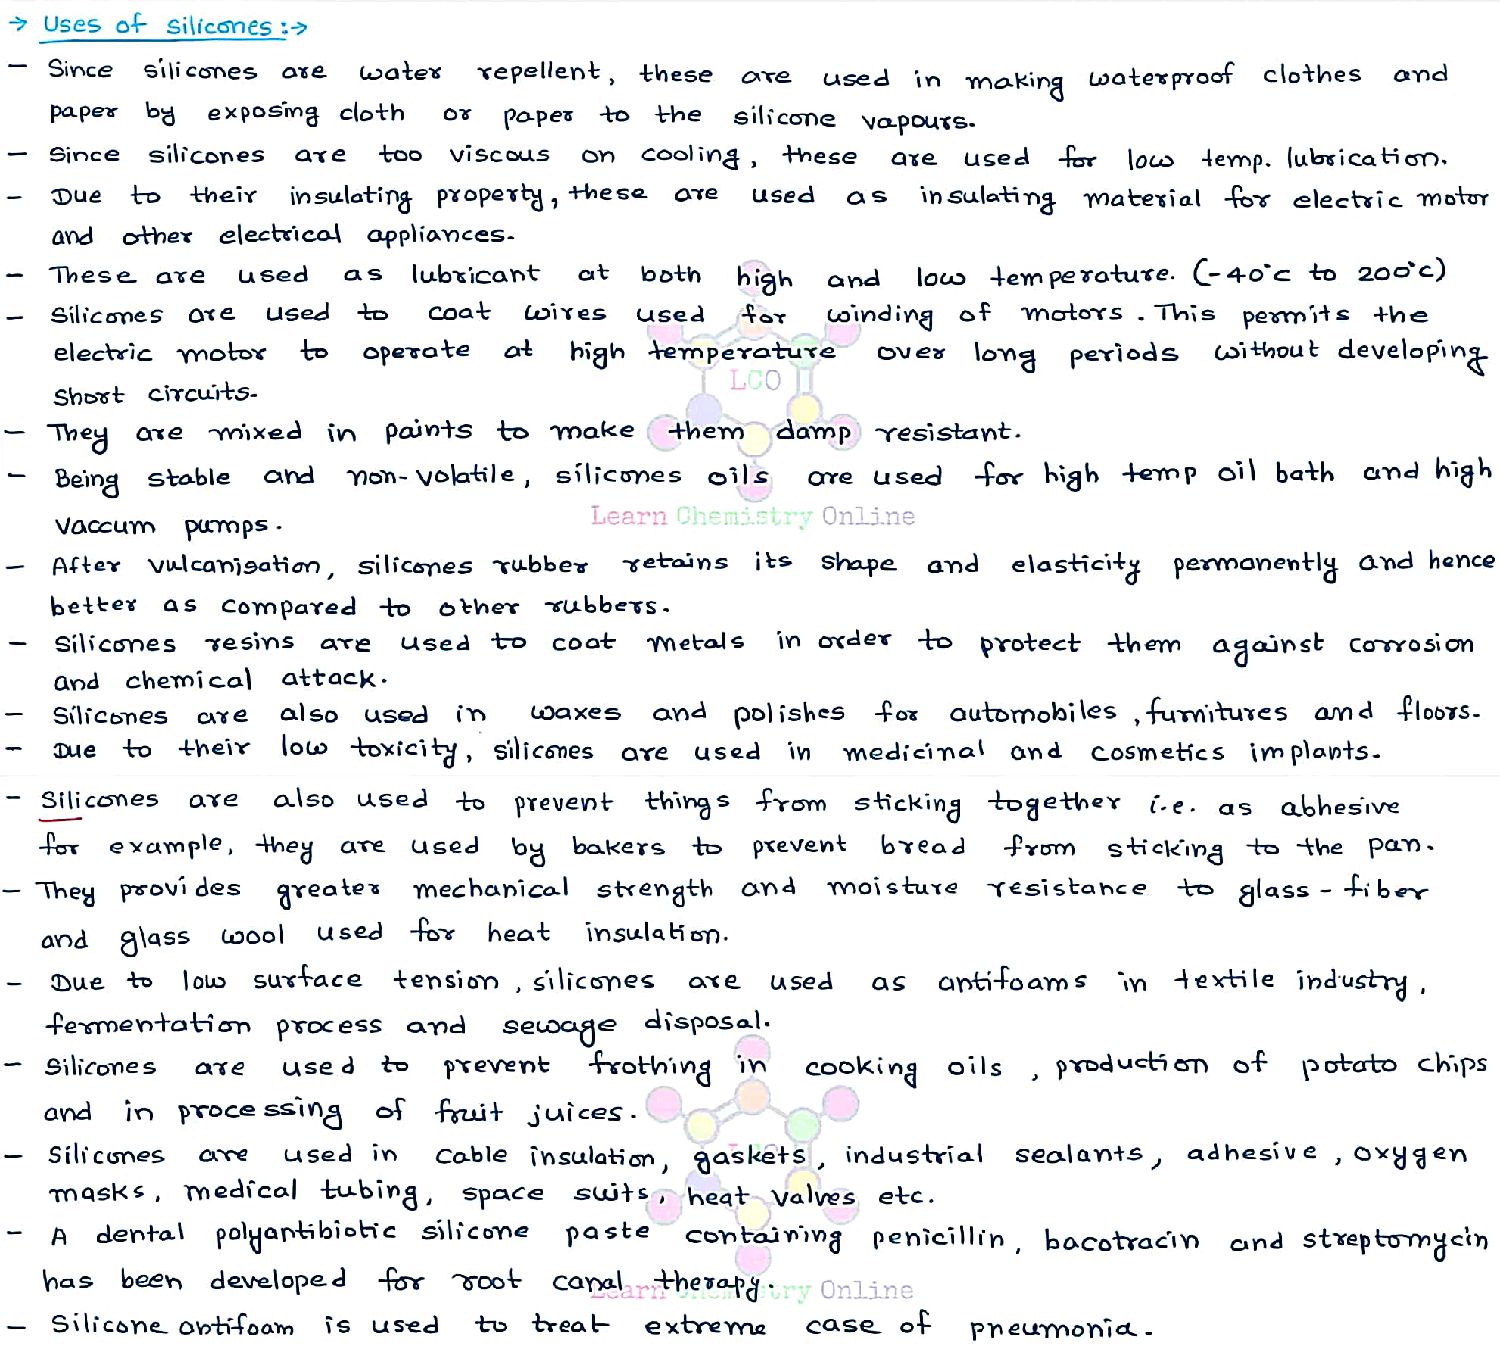 → Uses of silicones :→
– Since silicones are water repellent, these are used in making waterproof clothes and
paper by exposing cloth or paper to the silicone vapours.
– Since silicones are too viscous on cooling, these are used for low temp. lubrication.
– Due to their insulating property, these are used as insulating material for electric motor
and other electrical appliances.
– These are used as lubricant at both high and low temperature. (-40°c to 200°c)
– Silicones are used to coat wires used for winding of motors. This permits the
electric motor to operate at high temperature over long periods without developing
LCO
short circuits.
– They are mixed in paints to make them damp resistant.
– Being stable and non-volatile, silicones oils are used for high temp oil bath and high
Learn Chemistry Online
vaccum pumps.
– After vulcanisation, silicones rubber retains its shape and elasticity permanently and hence
better as compared to other rubbers.
– Silicones resins are used to coat metals in order to protect them against corrosion
and chemical attack.
– Silicones are also used in waxes and polishes for automobiles, furnitures and floors.
– Due to their low toxicity, silicones are used in medicinal and cosmetics implants.
– Silicones are also used to prevent things from sticking together i.e. as abhesive
for example, they are used by bakers to prevent bread from sticking to the pan.
– They provides greater mechanical strength and moisture resistance to glass-fiber
and glass wool used for heat insulation.
– Due to low surface tension, silicones are used as antifoams in textile industry,
fermentation process and sewage disposal.
– Silicones are used to prevent frothing in cooking oils, production of potato chips
and in processing of fruit juices.
– Silicones are used in cable insulation, gaskets, industrial sealants, adhesive, oxygen
masks, medical tubing, space suits, heat valves etc.
– A dental polyantibiotic silicone paste containing penicillin, bacotracin and streptomycin
has been developed for root canal therapy.
Learn Chemistry Online
– Silicone antifoam is used to treat extreme case of pneumonia.